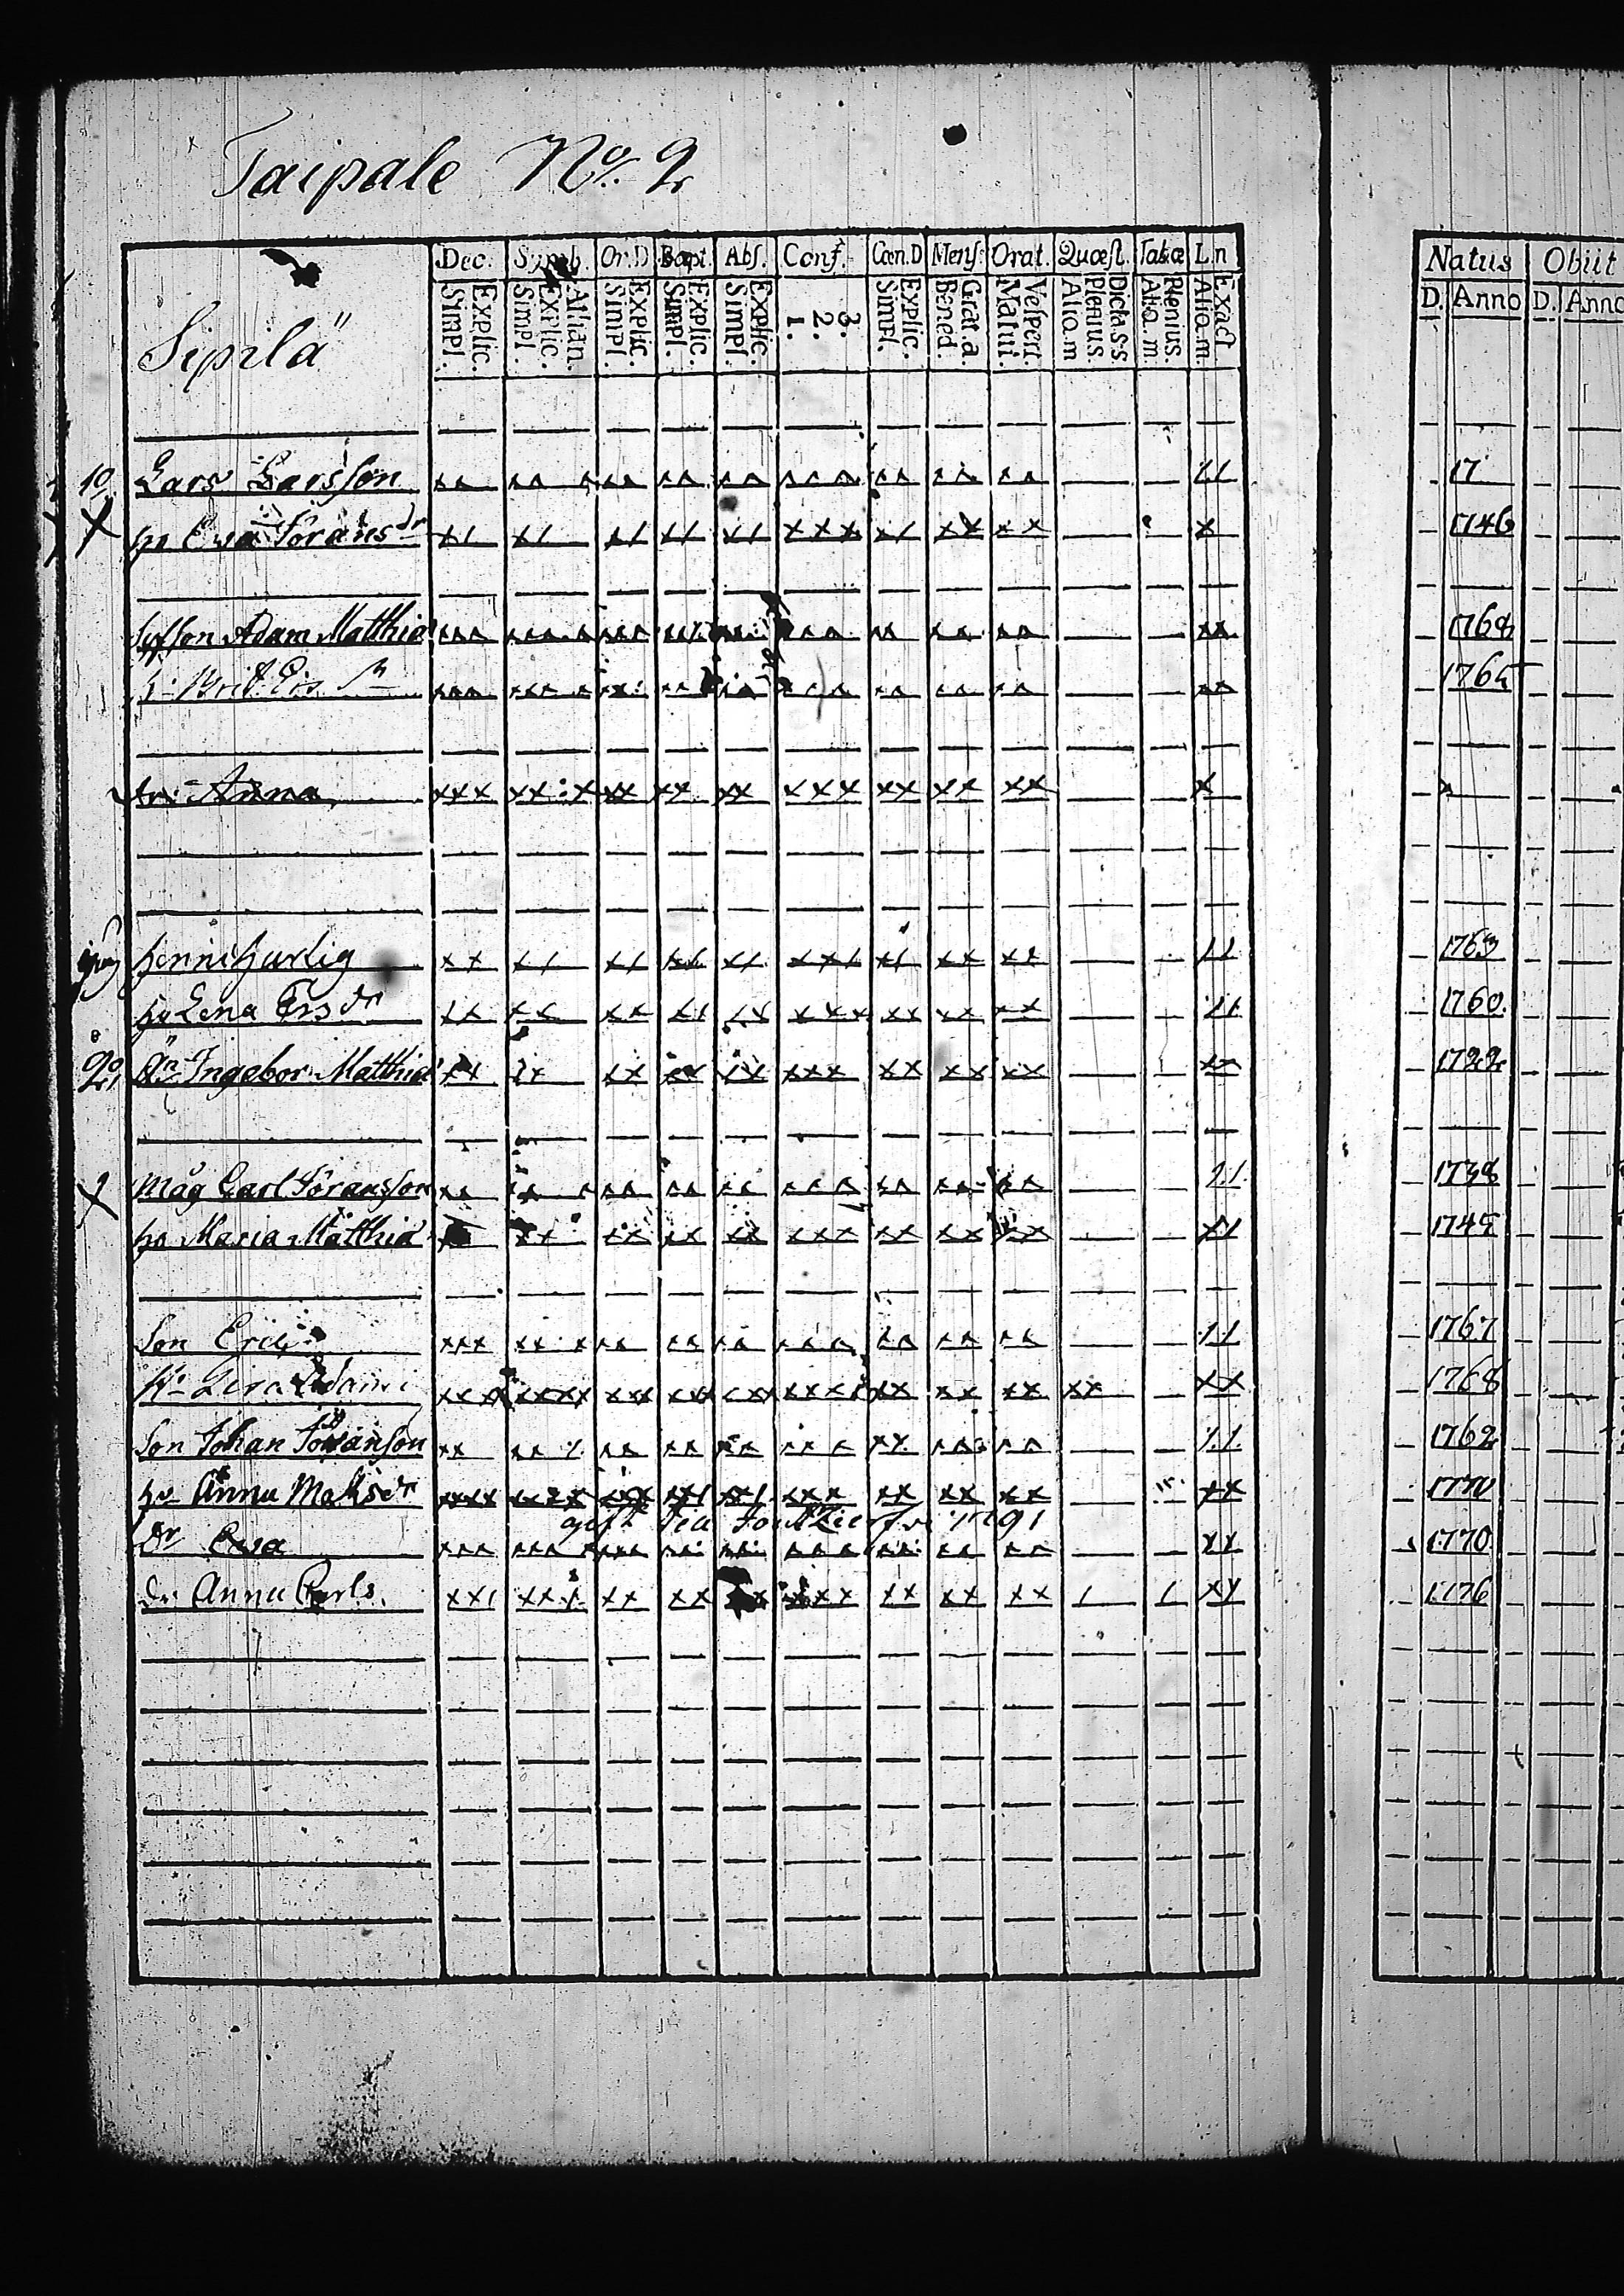 Taipale No. 2
Sipilä
Dec. Symb. Or.D Bapt. Abſ. Conf. Cœn.D Menſ. Orat. Quæſt. Tabæ L.n
Explic. Simpl. Athan. Explic. Simpl. Explic. Simpl. Explic. Simpl. Explic. Simpl. 3. 2. 1. Explic. Simpl. Grat. a. Bened. Veſpert. Matut. Dicta.s.s. Plenius. Aliq.m Plenius. Aliq.m. Exact Aliq.m.
Natus Obiit
D. Anno D. Anno
10 Lars Larsson 17
hu Eva Jörans dr 1746
Syſſon Adam Matthiæ 1768
h: Brit Ers 1765
dr: Anna
1763
hu Lena Ers dr 1760
Ingebor Matthiæ 1722
Måg Carl Jöransson 1738
hu Maria Matthiæ 1745
Son Eric 1767
1768
Son Johan Johanſon 1762
hu Anna Matsdr 1770
gift 1791
Dr Eva 1770
dr Anna Carls. 1776